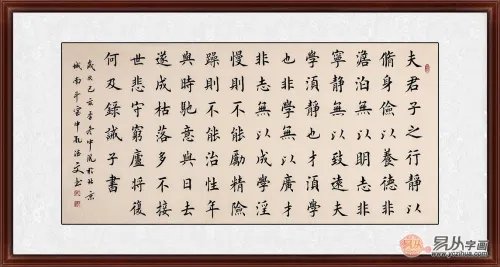 夫君子之行靜以
脩身儉以養德非
澹泊無以明志非
寧靜無以致遠夫
學湏靜也才湏學
也非學無以廣才
非志無以成學淫
慢則不能勵精險
躁則不能治性年
與時馳意與日去
遂成枯落多不接
世悲守窮廬將復
何及錄誡子書
歲次己亥季冬中浣於北京
城南
易从字画
www.yozihua.com